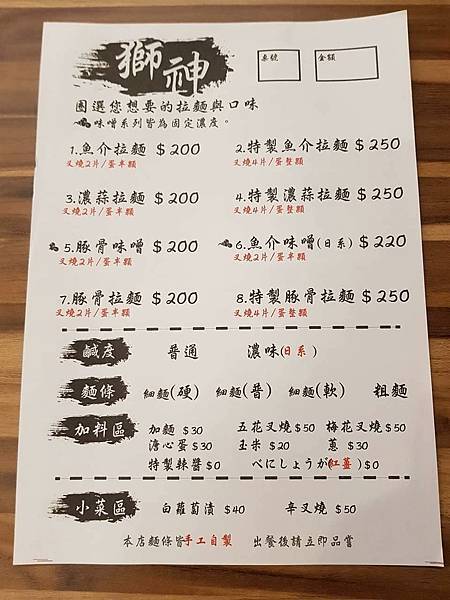 獅神
桌號 金額
圈選您想要的拉麵與口味
味噌系列皆為固定濃度。
1.魚介拉麵 $200 2.特製魚介拉麵 $250
叉燒2片/蛋半顆 叉燒4片/蛋整顆
3.濃蒜拉麵 $200 4.特製濃蒜拉麵 $250
叉燒2片/蛋半顆 叉燒4片/蛋整顆
5.豚骨味噌 $200 6.魚介味噌(日系) $220
叉燒2片/蛋半顆 叉燒2片/蛋半顆
7.豚骨拉麵 $200 8.特製豚骨拉麵 $250
叉燒2片/蛋半顆 叉燒4片/蛋整顆
鹹度 普通 濃味(日系)
麵條 細麵(硬) 細麵(普) 細麵(軟) 粗麵
加料區 加麵 $30 五花叉燒 $50 梅花叉燒 $50
溏心蛋 $30 玉米 $20 蔥 $30
特製辣醬 $0 べにしょうが(紅薑) $0
小菜區 白蘿蔔漬 $40 辛叉燒 $50
本店麵條皆手工自製 出餐後請立即品嘗